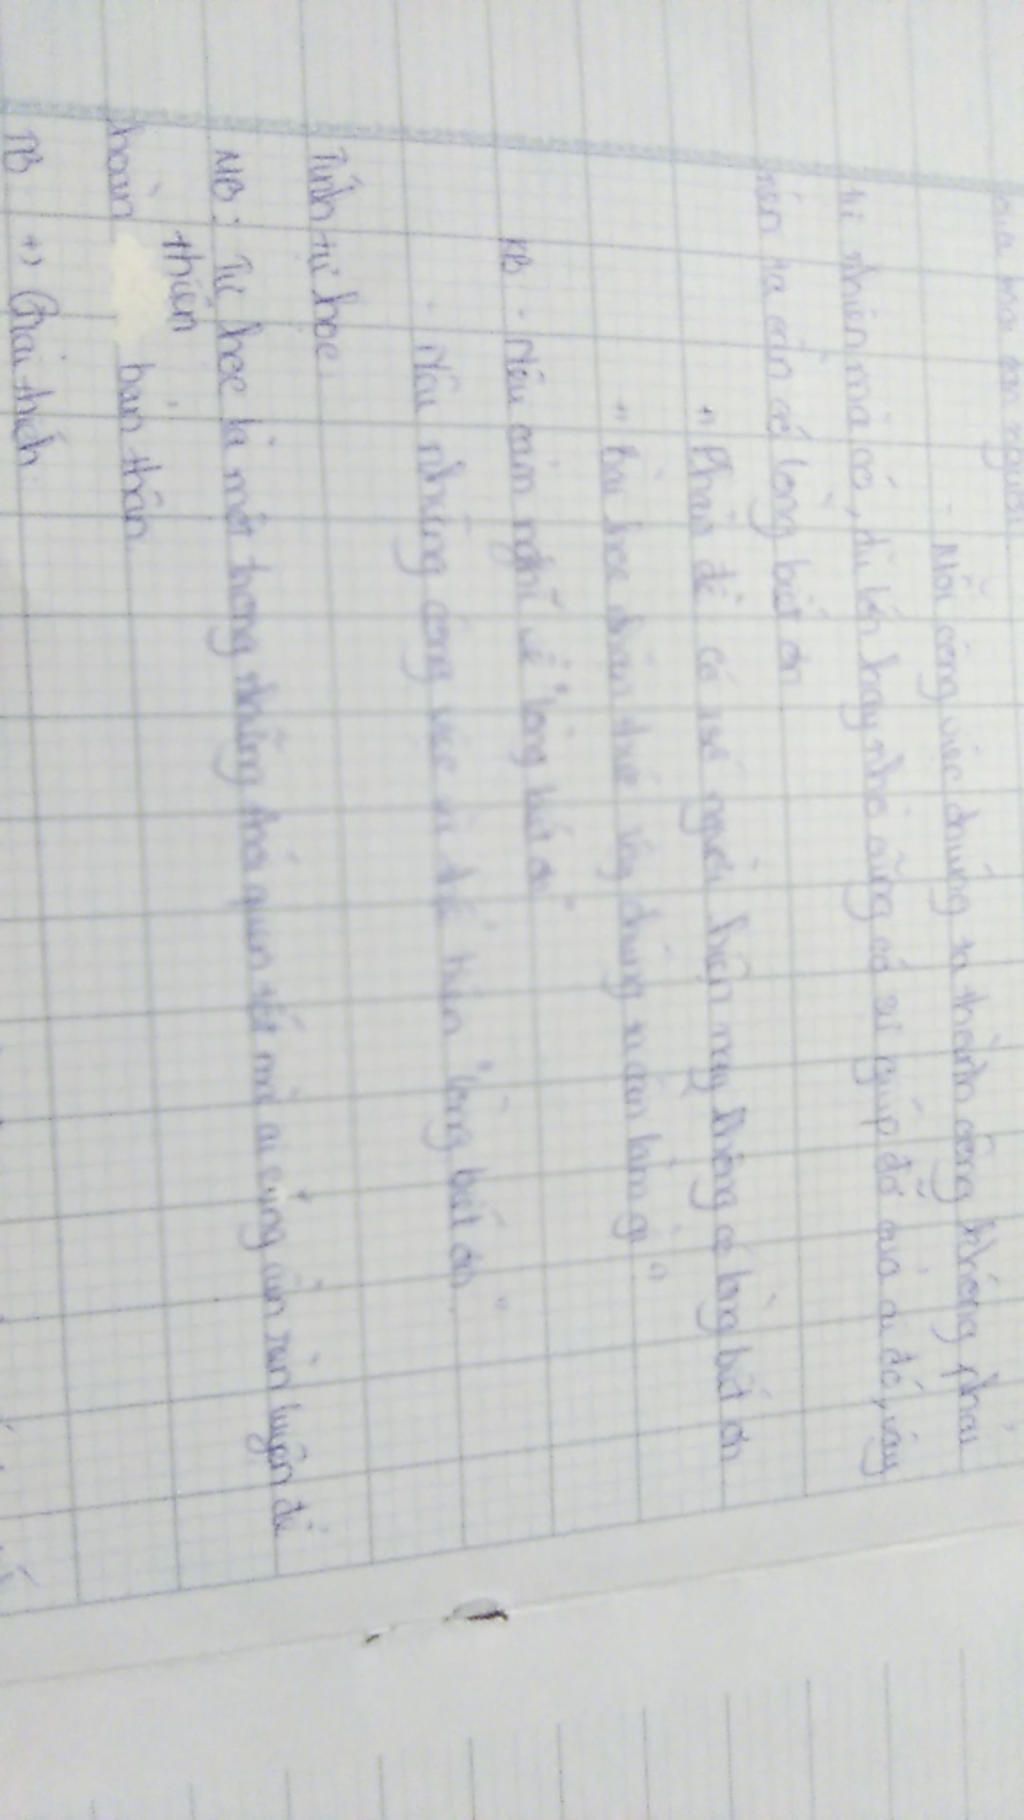 của mỗi con người
- Mỗi công việc chúng ta thành công không phải
tự nhiên mà có, dù lớn hay nhỏ cũng có sự giúp đỡ của ai đó, vậy
nên ta cần có lòng biết ơn
+) Phản đề có số người hiện nay không có lòng biết ơn
+) Bài học nhân thức
KB: - Nêu cảm nghĩ về "lòng biết ơn"
- Nêu những công việc thể hiện "lòng biết ơn"
Tính tự học
MB: Tự học là một trong những thói quen tốt mà ai cũng cần rèn luyện để
hoàn thiện bản thân
TB +) Giải thích: